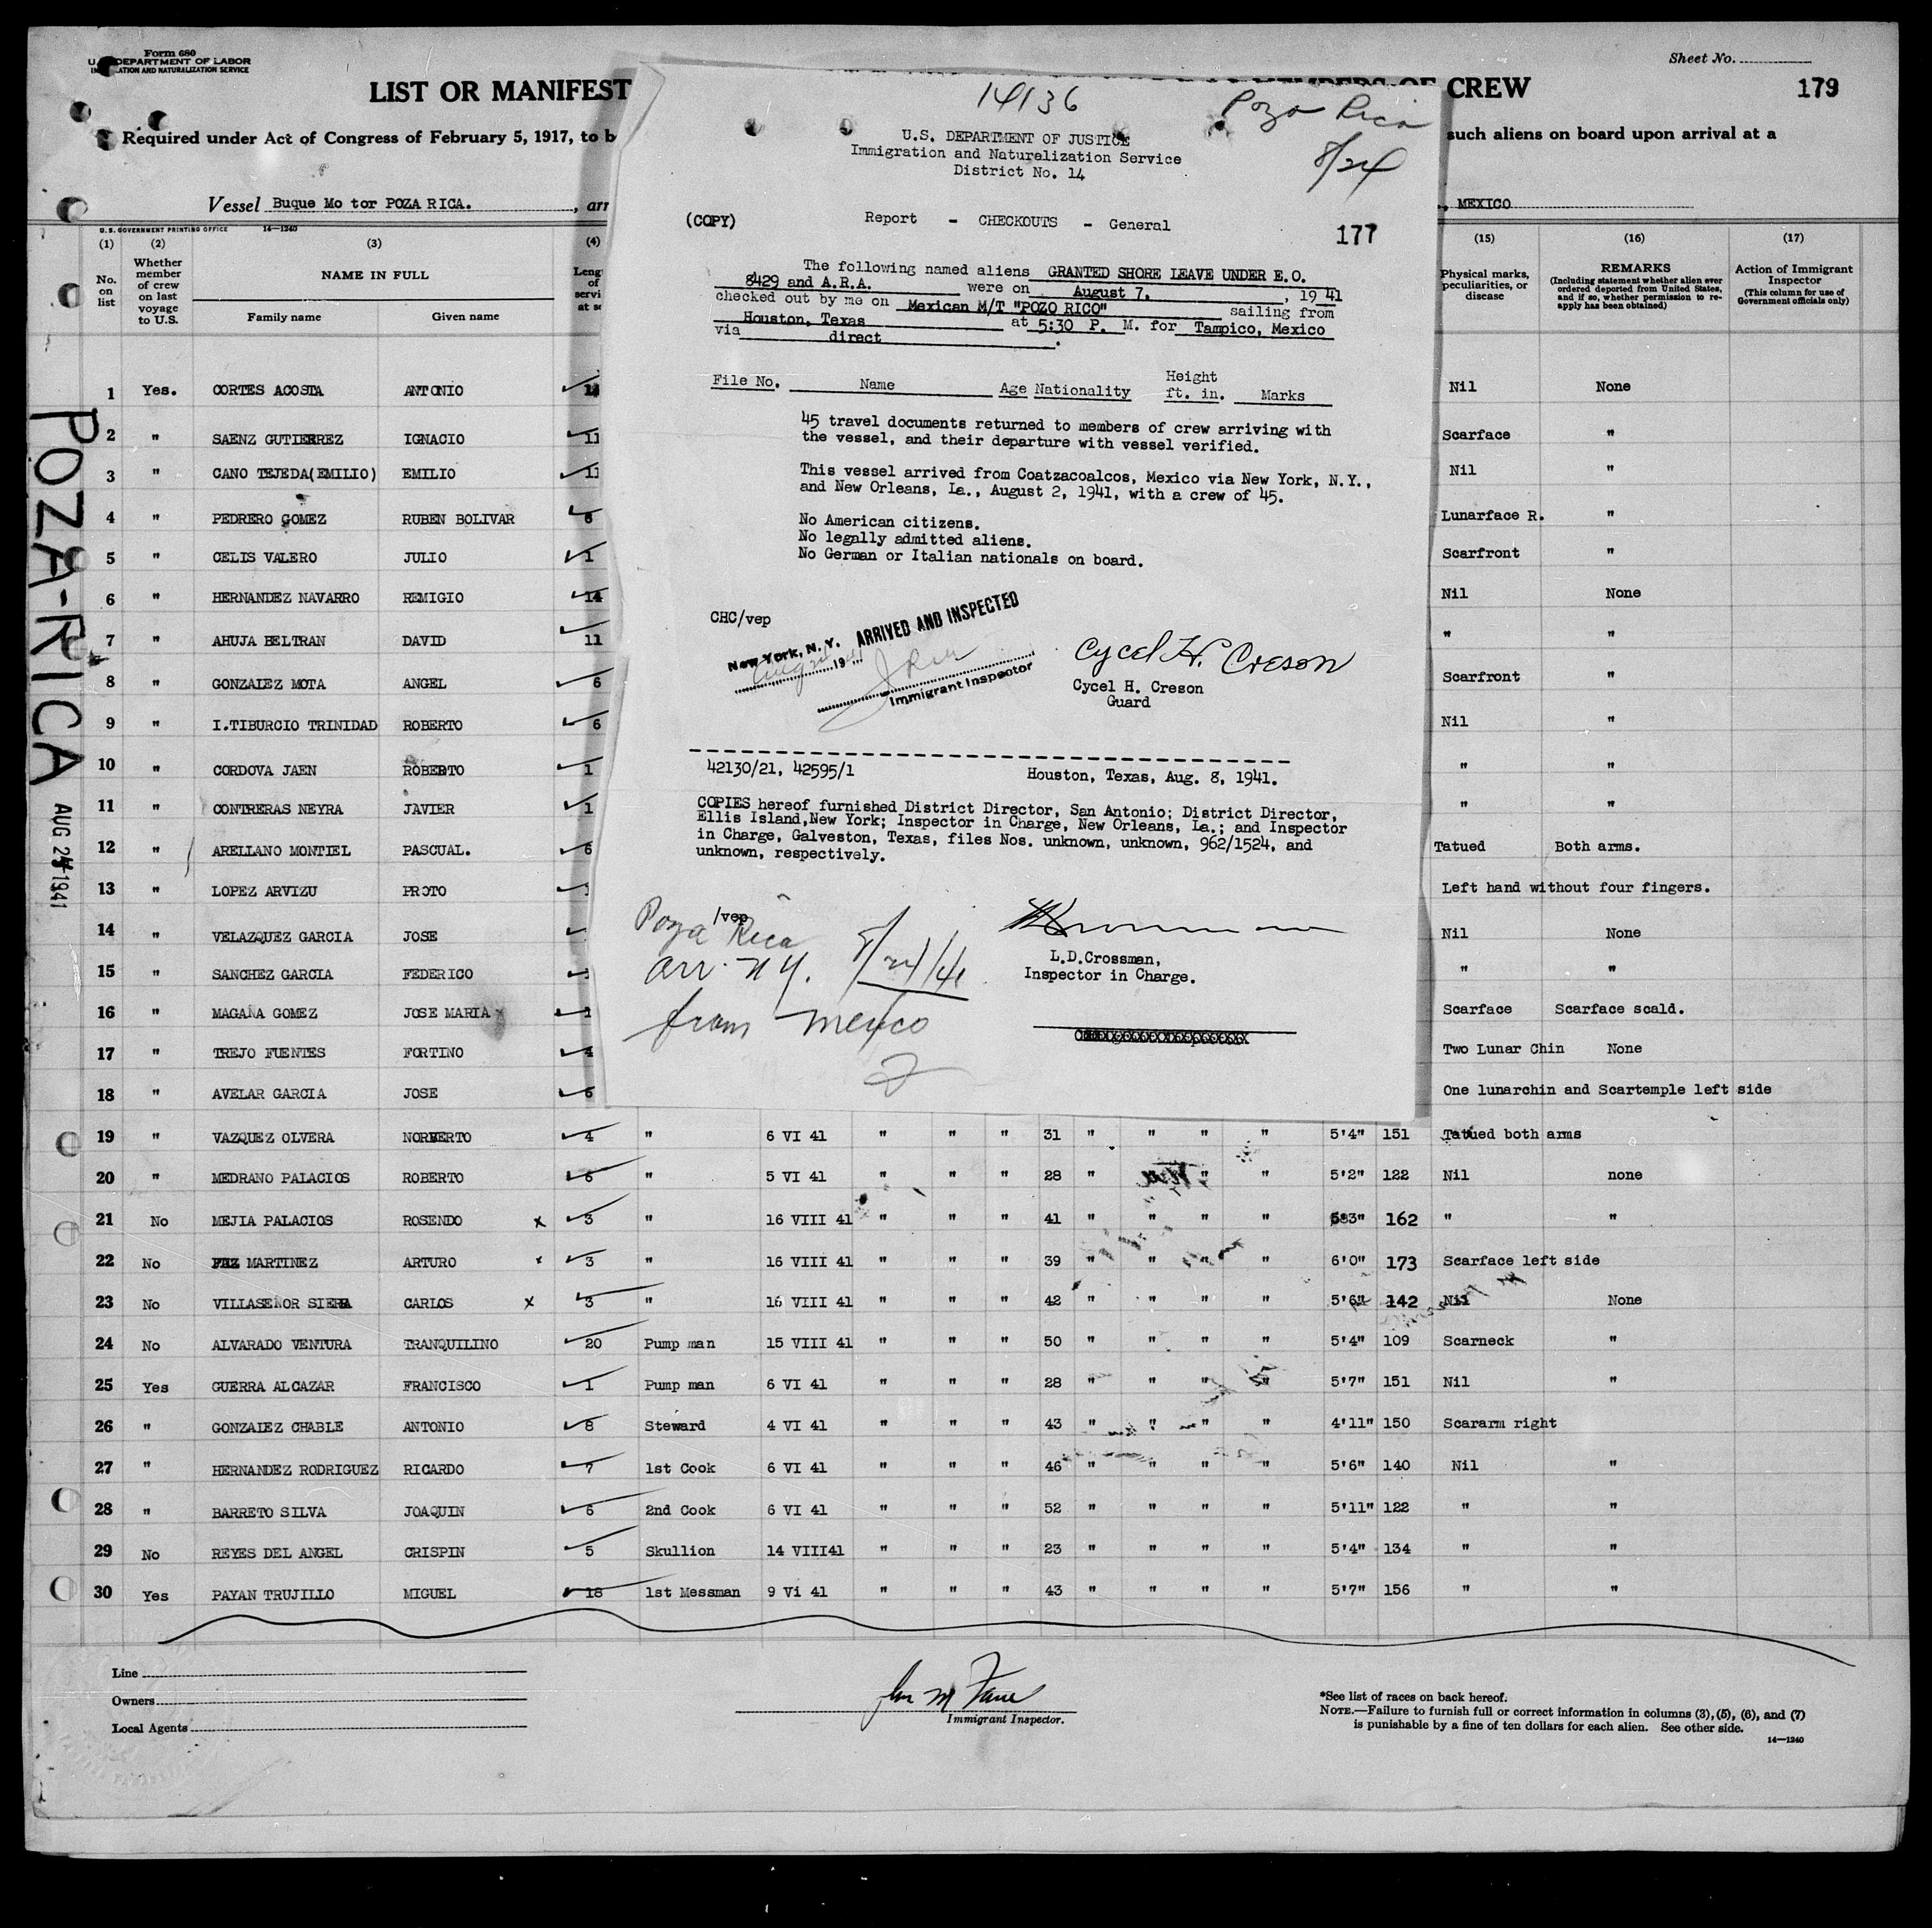 Form 680
U. DEPARTMENT OF LABOR
IMMIGRATION AND NATURALIZATION SERVICE
Sheet No.
LIST OR MANIFEST
CREW
179
Required under Act of Congress of February 5, 1917, to b
such aliens on board upon arrival at a
Vessel Buque Mo tor POZA RICA. , arr
, MEXICO
U. S. GOVERNMENT PRINTING OFFICE 14—1240
(1) (2) (3) (4) (15) (16) (17)
No. on list
Whether member of crew on last voyage to U.S.
NAME IN FULL
Family name Given name
Physical marks, peculiarities, or disease
REMARKS
(Including statement whether alien ever ordered deported from United States, and if so, whether permission to reapply has been obtained)
Action of Immigrant Inspector
(This column for use of Government officials only)
14136
Pozo Rico
8/24
U.S. DEPARTMENT OF JUSTICE
Immigration and Naturalization Service
District No. 14
(COPY) Report - CHECKOUTS - General
177
The following named aliens GRANTED SHORE LEAVE UNDER E.O.
8429 and A.R.A. were on August 7, , 1941
checked out by me on Mexican M/T "POZO RICO" sailing from
Houston, Texas at 5:30 P. M. for Tampico, Mexico
via direct .
File No. Name Age Nationality Height ft. in. Marks
45 travel documents returned to members of crew arriving with
the vessel, and their departure with vessel verified.
This vessel arrived from Coatzacoalcos, Mexico via New York, N.Y.,
and New Orleans, La., August 2, 1941, with a crew of 45.
No American citizens.
No legally admitted aliens.
No German or Italian nationals on board.
CHC/vep
New York, N. Y. 19
ARRIVED AND INSPECTED
Immigrant Inspector
Cycel H. Creson
Cycel H. Creson
Guard
42130/21, 42595/1 Houston, Texas, Aug. 8, 1941.
COPIES hereof furnished District Director, San Antonio; District Director,
Ellis Island,New York; Inspector in Charge, New Orleans, La.; and Inspector
in Charge, Galveston, Texas, files Nos. unknown, unknown, 962/1524, and
unknown, respectively.
/vep
Poza Rica
arr. N Y. 8/24/41
from Mexico
L.D.Crossman,
Inspector in Charge.
POZA-RICA
AUG 24 1941
1 Yes. CORTES ACOSTA ANTONIO Nil None
2 " SAENZ GUTIERREZ IGNACIO 11 Scarface "
3 " CANO TEJEDA(EMILIO) EMILIO 11 Nil "
4 " PEDRERO GOMEZ RUBEN BOLIVAR 6 Lunarface R. "
5 " CELIS VALERO JULIO 1 Scarfront "
6 " HERNANDEZ NAVARRO REMIGIO 14 Nil None
7 " AHUJA BELTRAN DAVID 11 " "
8 " GONZALEZ MOTA ANGEL 6 Scarfront "
9 " I.TIBURCIO TRINIDAD ROBERTO 6 Nil "
10 " CORDOVA JAEN ROBERTO 1 " "
11 " CONTRERAS NEYRA JAVIER 1 " "
12 " ARELLANO MONTIEL PASCUAL. 6 Tatued Both arms.
13 " LOPEZ ARVIZU PROTO Left hand without four fingers.
14 " VELAZQUEZ GARCIA JOSE Nil None
15 " SANCHEZ GARCIA FEDERICO " "
16 " MAGAÑA GOMEZ JOSE MARIA Scarface Scarface scald.
17 " TREJO FUENTES FORTINO 4 Two Lunar Chin None
18 " AVELAR GARCIA JOSE 6 One lunarchin and Scartemple left side
19 " VAZQUEZ OLVERA NORBERTO 4 " 6 VI 41 " " " 31 " " " " 5'4" 151 Tatued both arms
20 " MEDRANO PALACIOS ROBERTO 6 " 5 VI 41 " " " 28 " " " 5'2" 122 Nil none
21 No MEJIA PALACIOS ROSENDO x 3 " 16 VIII 41 " " " 41 " " " " 5'3" 162 " "
22 No PAZ MARTINEZ ARTURO x 3 " 16 VIII 41 " " " 39 " " " " 6'0" 173 Scarface left side
23 No VILLASEÑOR SIERA CARLOS x 3 " 16 VIII 41 " " " 42 " " " " 5'6" 142 Nil None
24 No ALVARADO VENTURA TRANQUILINO 20 Pump man 15 VIII 41 " " " 50 " " " " 5'4" 109 Scarneck "
25 Yes GUERRA ALCAZAR FRANCISCO 1 Pump man 6 VI 41 " " " 28 " " " " 5'7" 151 Nil "
26 " GONZALEZ CHABLE ANTONIO 8 Steward 4 VI 41 " " " 43 " " " " 4'11" 150 Scararm right
27 " HERNANDEZ RODRIGUEZ RICARDO 7 1st Cook 6 VI 41 " " " 46 " " " " 5'6" 140 Nil "
28 " BARRETO SILVA JOAQUIN 6 2nd Cook 6 VI 41 " " " 52 " " " " 5'11" 122 " "
29 No REYES DEL ANGEL CRISPIN 5 Skullion 14 VIII41 " " " 23 " " " " 5'4" 134 " "
30 Yes PAYAN TRUJILLO MIGUEL 18 1st Messman 9 Vi 41 " " " 43 " " " " 5'7" 156 " "
Line
Owners
Local Agents
Immigrant Inspector.
*See list of races on back hereof.
NOTE.—Failure to furnish full or correct information in columns (3),(5), (6), and (7)
is punishable by a fine of ten dollars for each alien. See other side.
14—1240